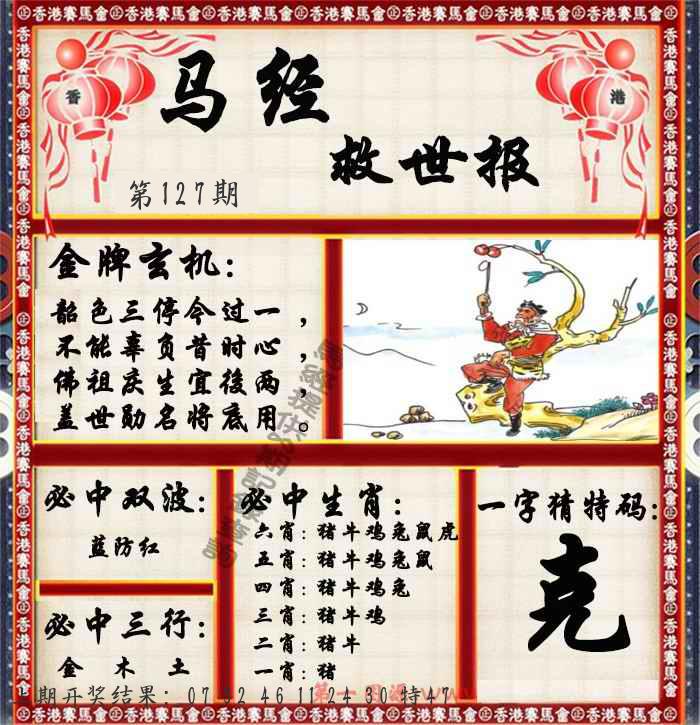 香港賽馬會
香
港
马经
救世报
第127期
金牌玄机：
韶色三停今过一，
不能辜负昔时心，
佛祖庆生宜後两，
盖世勋名将底用。
必中双波：
蓝防红
必中三行：
金 木 土
必中生肖：
六肖：猪牛鸡兔鼠虎
五肖：猪牛鸡兔鼠
四肖：猪牛鸡兔
三肖：猪牛鸡
二肖：猪牛
一肖：猪
一字猜特码：
克
期开奖结果：07 32 46 11 24 30 特47